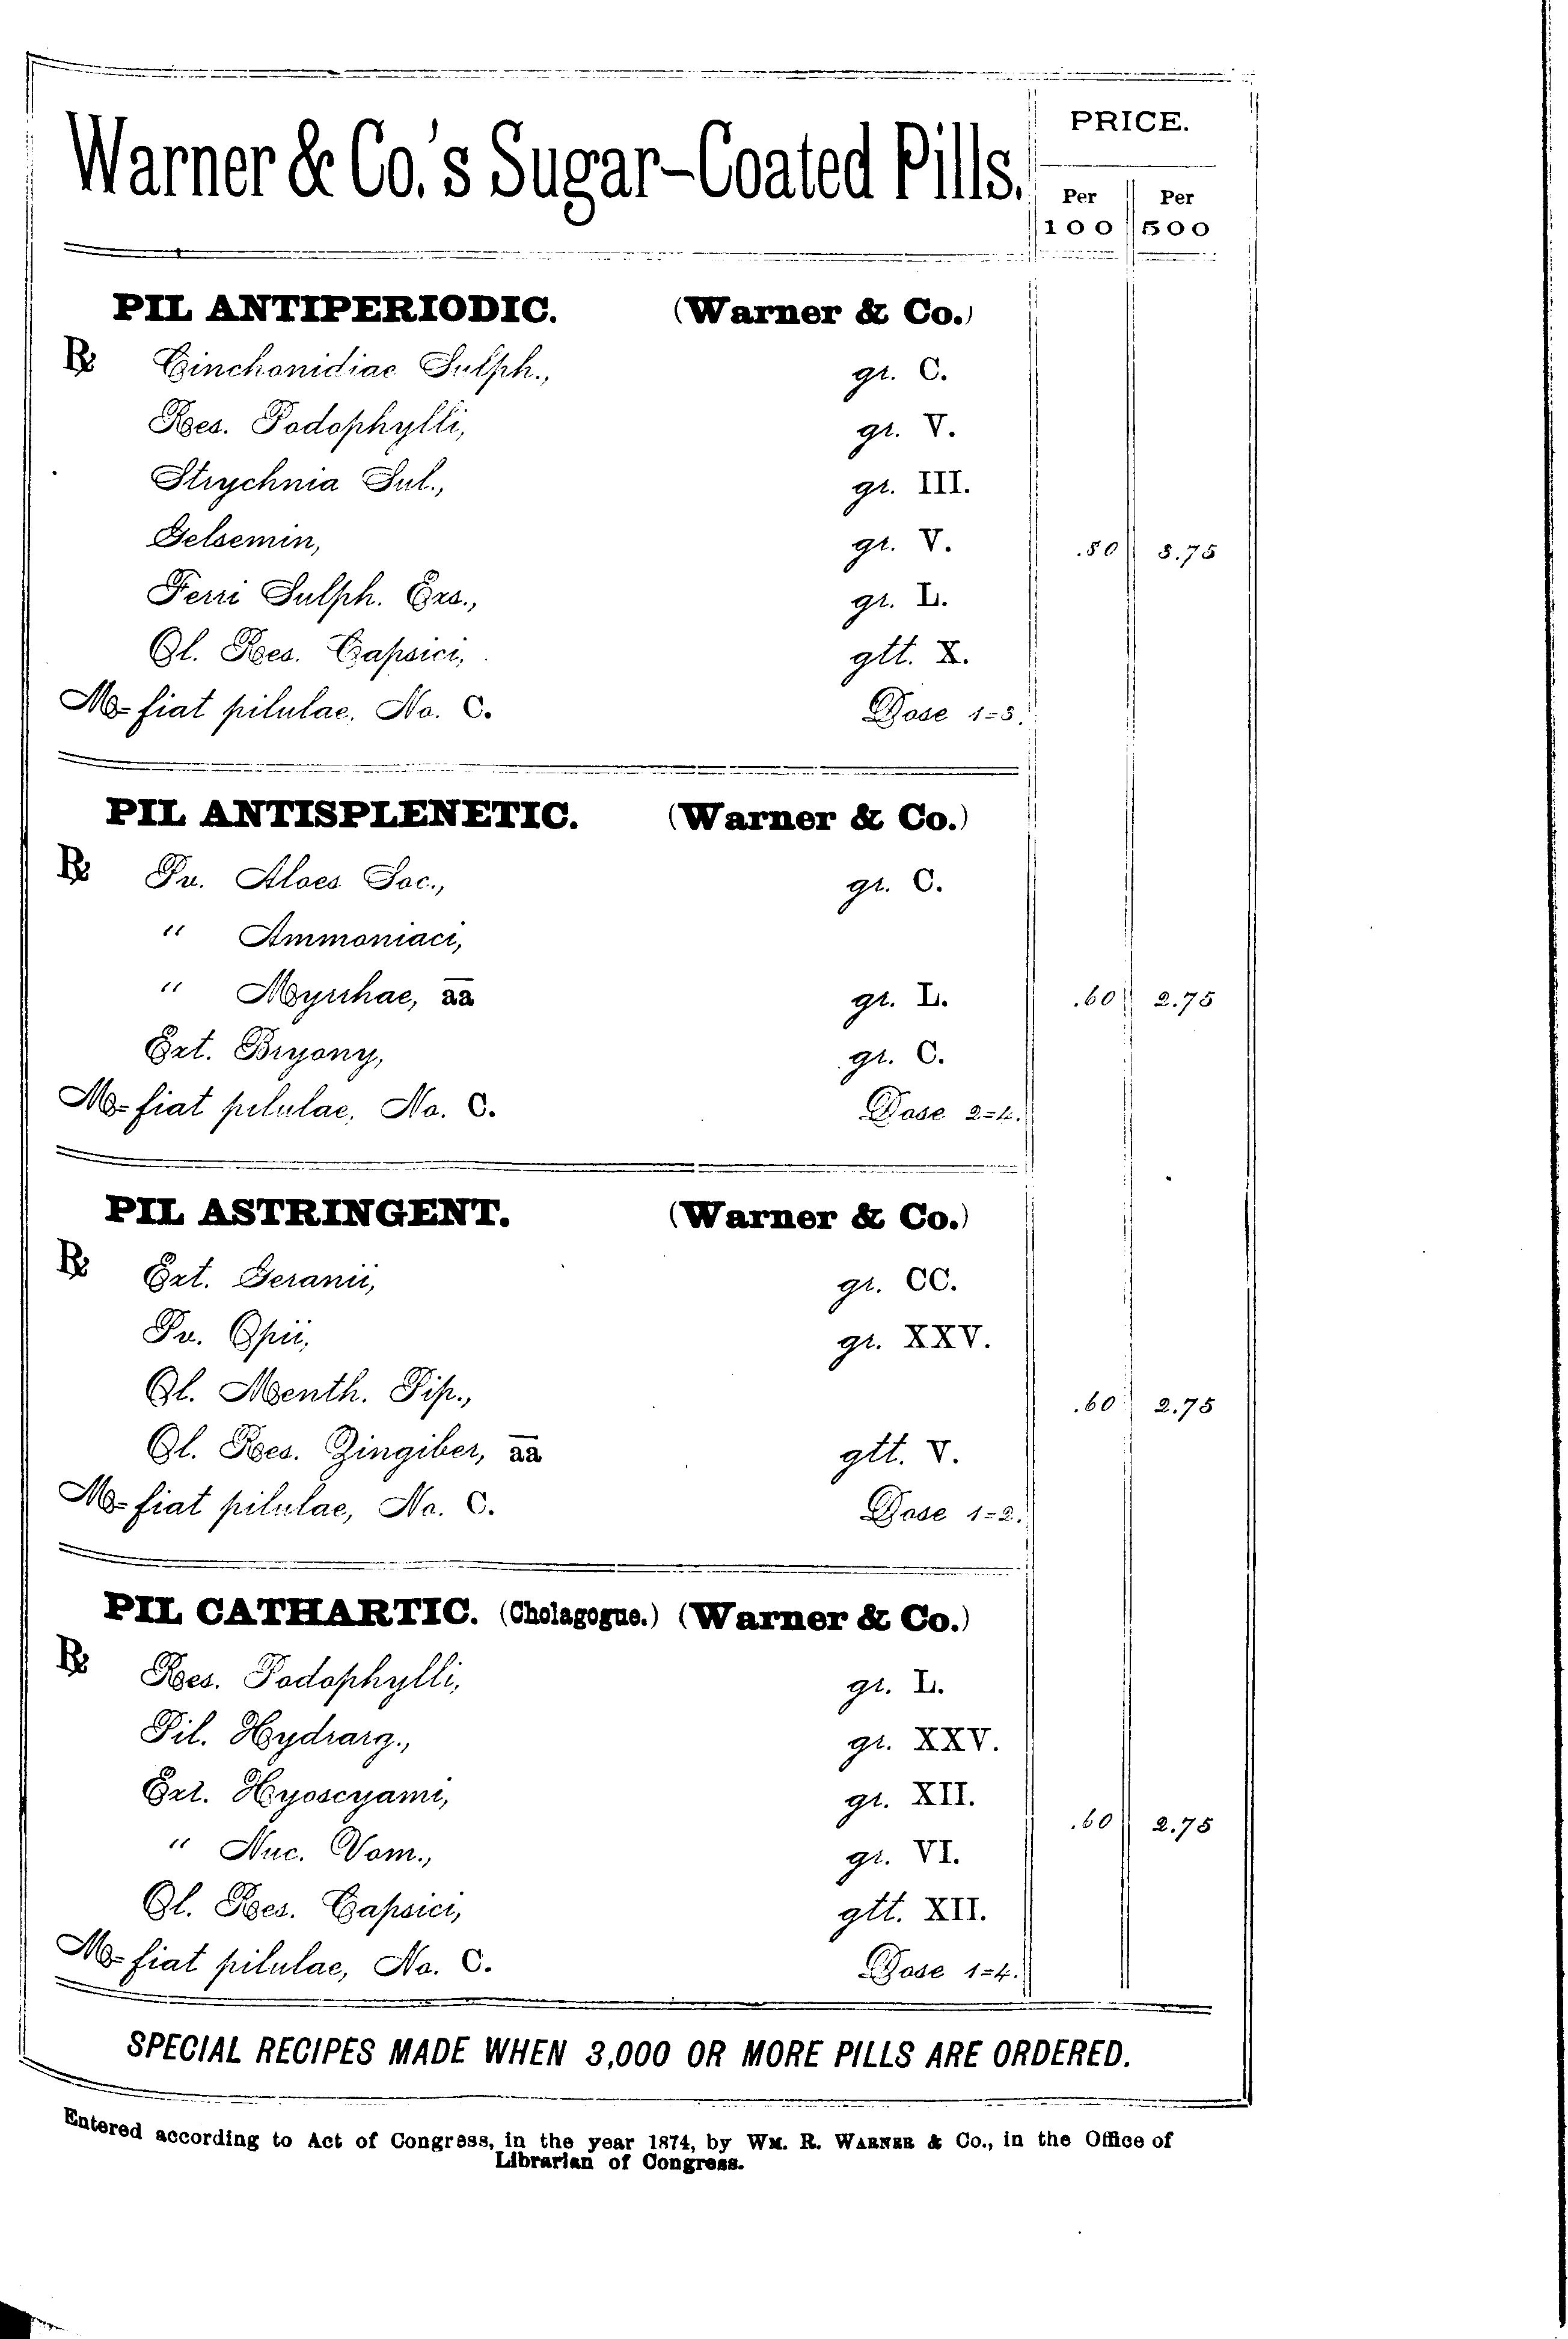 Warner & Co.'s Sugar-Coated Pills.
PRICE.
Per 100 Per 500
PIL ANTIPERIODIC. (Warner & Co.)
℞ Cinchonidiae Sulph., gr. C.
Res. Podophylli, gr. V.
Strychnia Sul., gr. III.
Gelsemin, gr. V. .80 3.75
Ferri Sulph. Exs., gr. L.
Ol. Res. Capsici, gtt. X.
M-fiat pilulae, No. C. Dose 1=3.
PIL ANTISPLENETIC. (Warner & Co.)
℞ Pv. Aloes Soc., gr. C.
" Ammoniaci,
" Myrrhae, āā gr. L. .60 2.75
Ext. Bryony, gr. C.
M-fiat pilulae, No. C. Dose 2=4.
PIL ASTRINGENT. (Warner & Co.)
℞ Ext. Geranii, gr. CC.
Pv. Opii, gr. XXV.
Ol. Menth. Pip., .60 2.75
Ol. Res. Zingiber, āā gtt. V.
M-fiat pilulae, No. C. Dose 1=2.
PIL CATHARTIC. (Cholagogue.) (Warner & Co.)
℞ Res. Podophylli, gr. L.
Pil. Hydrarg., gr. XXV.
Ext. Hyoscyami, gr. XII. .60 2.75
" Nuc. Vom., gr. VI.
Ol. Res. Capsici, gtt. XII.
M-fiat pilulae, No. C. Dose 1=4.
SPECIAL RECIPES MADE WHEN 3,000 OR MORE PILLS ARE ORDERED.
Entered according to Act of Congress, in the year 1874, by WM. R. WARNER & Co., in the Office of
Librarian of Congress.